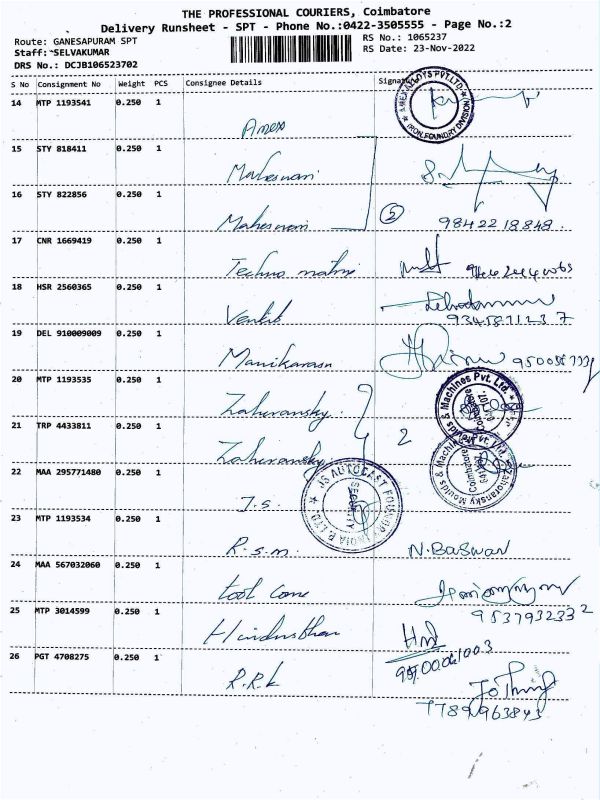 THE PROFESSIONAL COURIERS, Coimbatore
Delivery Runsheet - SPT - Phone No.:0422-3505555 - Page No.:2
Route: GANESAPURAM SPT
RS No.: 1065237
Staff: SELVAKUMAR
RS Date: 23-Nov-2022
DRS No.: DCJB106523702
S No Consignment No Weight PCS Consignee Details Signature
14 MTP 1193541 0.250 1
Amex
15 STY 818411 0.250 1
Maheswari
16 STY 822856 0.250 1
Maheswari 5 98422 18848.
17 CNR 1669419 0.250 1
Techno
18 HSR 2560365 0.250 1
Venkit
9345871237
19 DEL 910009009 0.250 1
Manikarasn
20 MTP 1193535 0.250 1
Zahoransky
21 TRP 4433811 0.250 1
Zahoransky 2
22 MAA 295771480 0.250 1
J.S.
23 MTP 1193534 0.250 1
R.S.M. N.Baswan
24 MAA 567032060 0.250 1
tool Come
9537932332
25 MTP 3014599 0.250 1
Hindusthan
26 PGT 4708275 0.250 1
R.R.K
7789963843
AMEX ALLOYS PVT. LTD.
IRON FOUNDRY DIVISION
Zahoransky Moulds & Machines Pvt. Ltd.
Coimbatore
Zahoransky Moulds & Machines Pvt. Ltd.
Coimbatore
JS AUTOCAST FOUNDRY INDIA P. LTD.
SECURITY